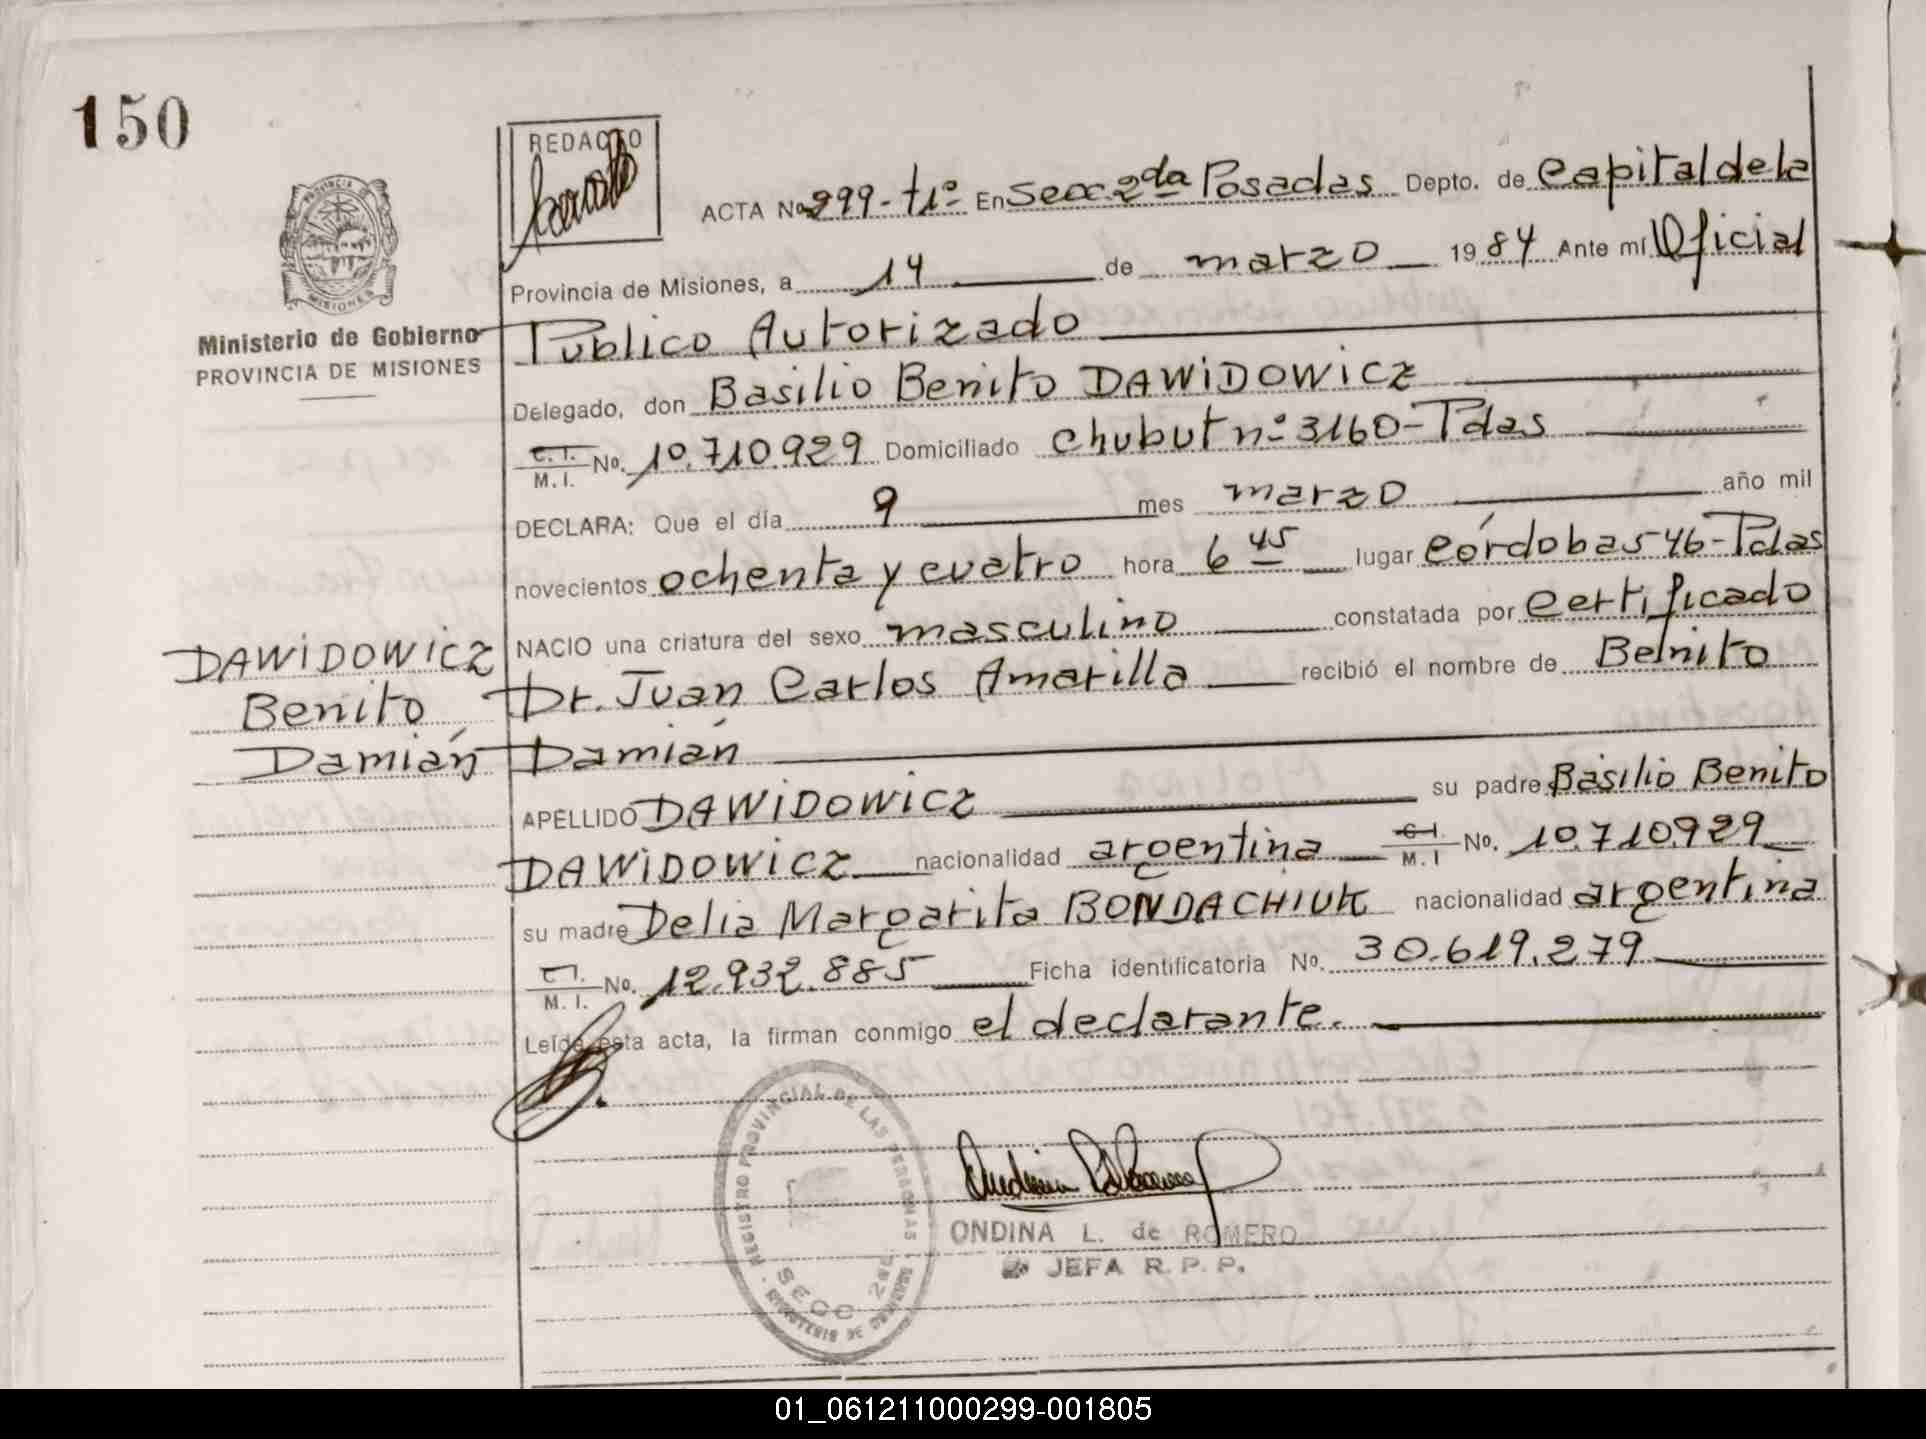 150
REDACTO
ACTA No 299-t1º En Secc. 2da Posadas Depto. de Capital de la
Provincia de Misiones, a 14 de marzo 1984 Ante mí Oficial
PROVINCIA DE
MISIONES
Ministerio de Gobierno
PROVINCIA DE MISIONES
Público Autorizado
Delegado, don Basilio Benito DAWIDOWICZ
C. I.
M. I. No. 10.710.929 Domiciliado Chubut nº 3160-Pdas
DECLARA: Que el día 9 mes marzo año mil
novecientos ochenta y cuatro hora 6 45 lugar Córdoba 546-Pdas
NACIO una criatura del sexo masculino constatada por Certificado
DAWIDOWICZ
Benito
Damián
Dr. Juan Carlos Amarilla recibió el nombre de Benito
Damián
APELLIDO DAWIDOWICZ su padre Basilio Benito
DAWIDOWICZ nacionalidad argentina C.I.
M. I No. 10.710.929
su madre Delia Margarita BONDACHIUK nacionalidad argentina
C. I.
M. I. No. 12.932.885 Ficha identificatoria No. 30.619.279
Leída esta acta, la firman conmigo el declarante.
REGISTRO PROVINCIAL DE LAS PERSONAS
SECC 2da
MINISTERIO DE GOBIERNO
ONDINA L. de ROMERO
JEFA R. P. P.
01_061211000299-001805